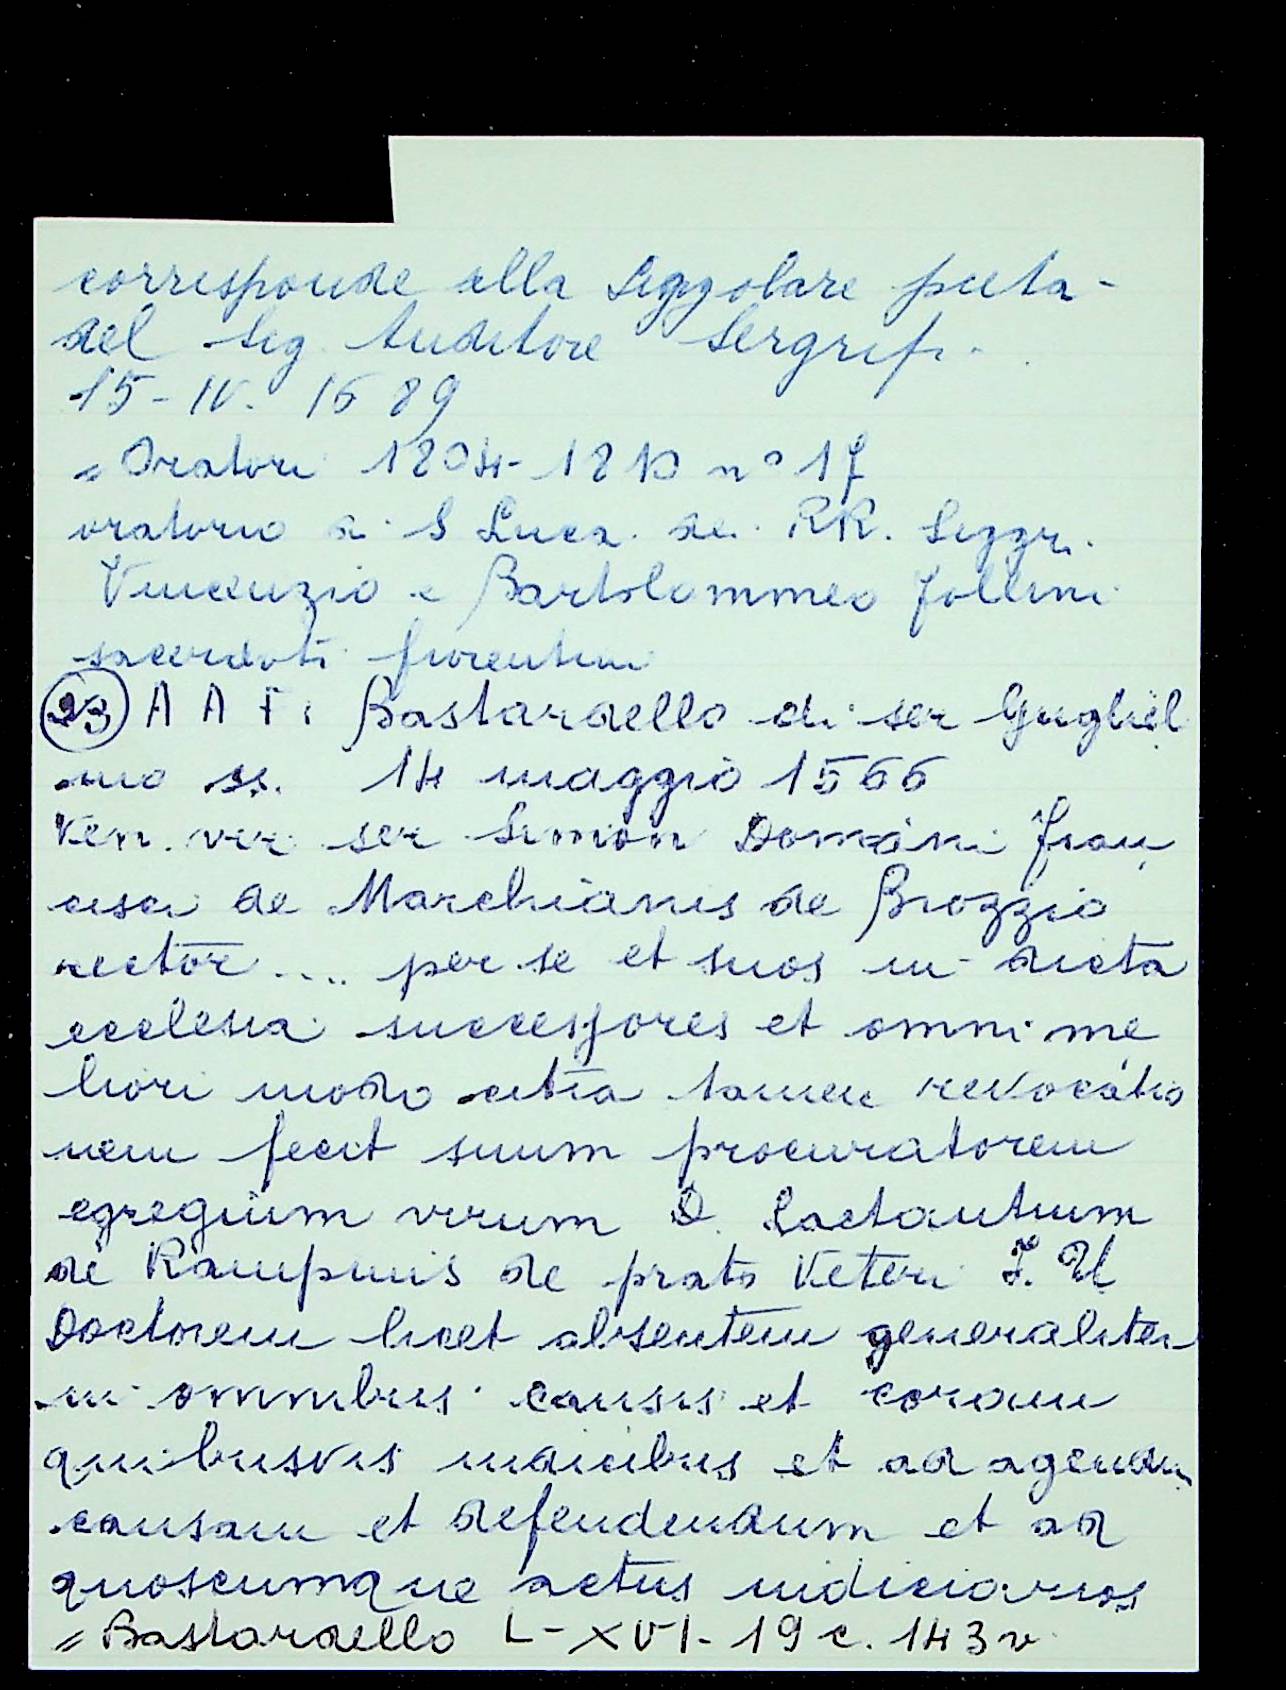 corrisponde alla Seggolare
del Sig. Auditore Sergrifi.
15-IV. 1689
= Oratori 1804-1810 n° 17
oratorio di S Luca. dei RR. Sizzri.
Vincenzio e Bartolommeo Follini
sacerdoti fiorentini
23 A A F: Bastardello di ser Gugliel
mo ss. 14 maggio 1566
Ven. vir ser Simon Domini Fran
cisci de Marchianis de Brozzio
rector .... per se et suos in dicta
ecclesia successores et omni me
liori modo citra tamen revocatio
nem fecit suum procuratorem
egregium virum D. Lactantium
de Rampinis de prato Veteri J. U
Doctorem licet absentem generaliter
in omnibus causis et coram
quibusvis iudicibus et ad agendu
causam et defendendum et ad
quoscumque actus iudiciarios
= Bastardello L-XVI-19 c. 143v